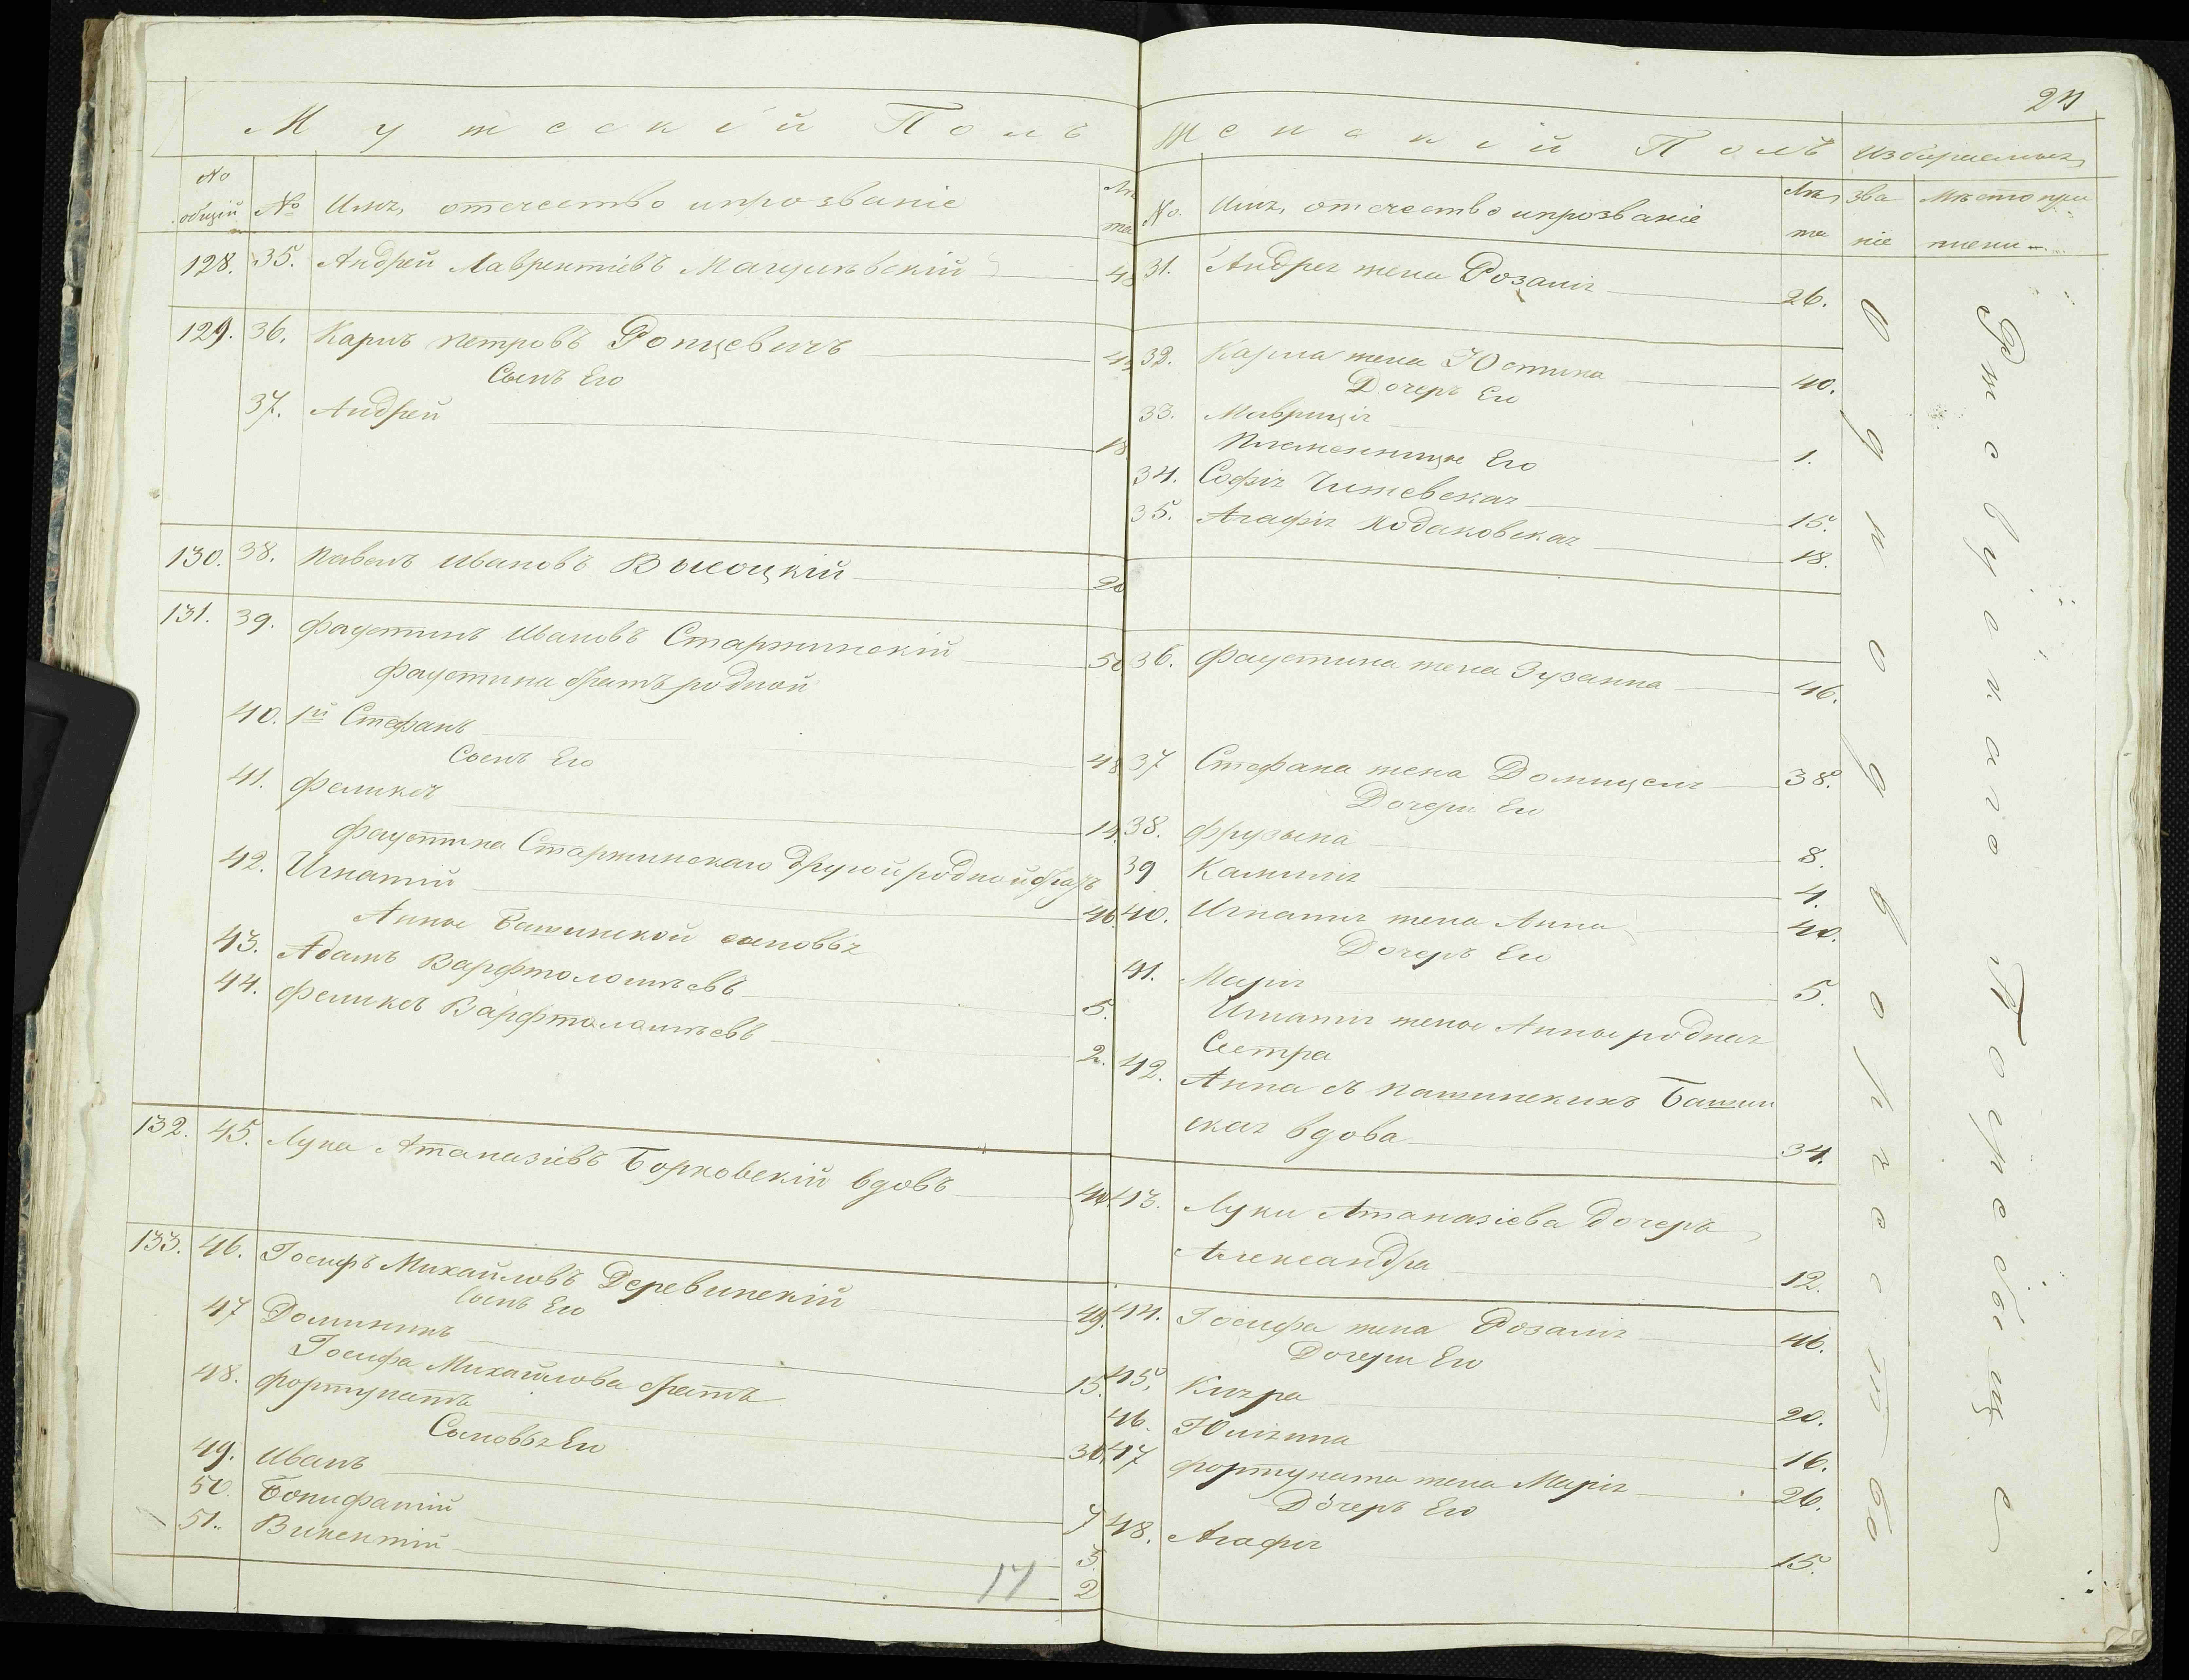 Мужескій Полъ
№ общій
№
Имя, отчество и прозваніе
Лѣта
128. 35. Андрей Лаврентіевъ 48
129. 36. Карлъ Петровъ Ронцевичъ 45
Сынъ Его
37. Андрей 18.
130. 38. Павелъ Ивановъ Высоцкій 20
131. 39. Фаустинъ Ивановъ Старжинскій 50
Фаустина братъ родной
40. 1й Стефанъ 48
Сынъ Его
41. Феликсъ 14.
Фаустина Старжинскаго другой родной братъ
42. Игнатій 46.
Анны Башинской сыновья
43. Адамъ Варфтоломѣевъ 5.
44. Феликсъ Варфтоломѣевъ 2.
132. 45. Лука Атаназіевъ Борковскій вдовъ 40.
133. 46. Іосифъ Михайловъ Деревинскій 49.
Сынъ Его
47 Доминикъ 15.
Іосифа Михайлова братъ
48. Фортунатъ 30.
Сыновья Его
49. Иванъ 7
50. Бонифатій 5.
51. Викентій 2
17
24
Женскій Полъ
Избираемыхъ
№.
Имя, отчество и прозваніе
Лѣта
званіе
Мѣсто при
31. Андрея жена Розалія 26.
32. Карла жена Юстина 40.
Дочерь Его
33. Мавриція 1.
Племенницы Его
34. Софія 15.
35. Агафія Ходаковская 18.
36. Фаустина жена Зузанна 46.
37 Стефана жена Домицеля 38.
Дочери Его
38. Фрузына 8.
39 Камилія 4.
40. Игнатія жена Анна 40.
Дочерь Его
41. Марія 5.
Игнатія жены Анны родная
Сестра
42. Анна съ Пашинскихъ Башин
ская вдова 34.
43. Луки Атаназіева дочерь
Александра 12.
44. Іосифа жена Розалія 46.
Дочери Его
45. Кизра 20.
46. Юліянна 16.
47 Фортуната жена Марія 26.
Дочерь Его
48. Агафія 15.
Однодворчество
Ржевуйскаго Тоеребище